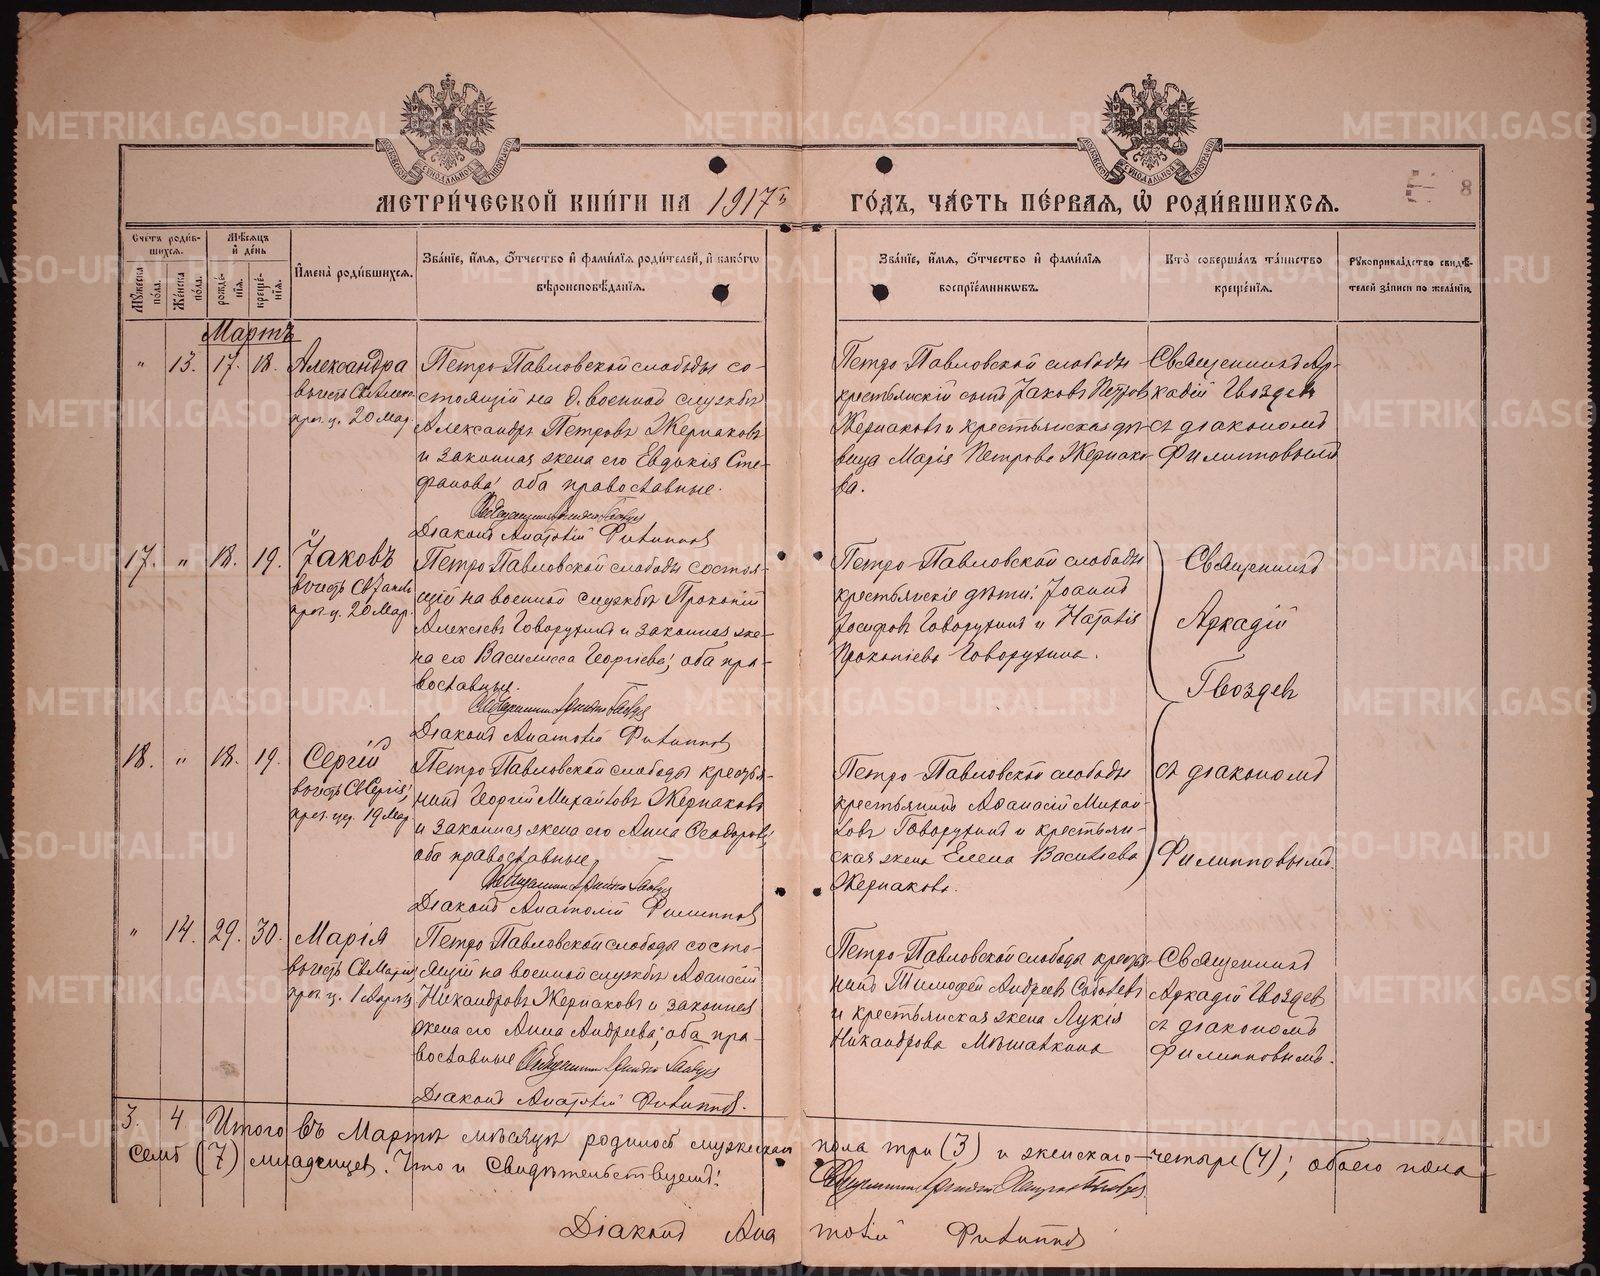 МЕТРИ́ЧЕСКОЙ КНИ́ГИ НА 1917й
ГО́ДЪ, ЧА́СТЬ ПЕ́РВАЯ, Ѡ РОДИ́ВШИХСЯ.
8
Счетъ роди́в-
шихся.
Мѣ́сяцъ
и҆ де́нь
Мꙋ́жеска по́ла.
Же́нска по́ла.
рожде́-
нїя.
креще́-
нїя.
И҆мена̀ роди́вшихся.
Зва́нїе, и҆́мѧ, ѻ҆́тчество и҆ фами́лїѧ роди́телей, и҆ како́гѡ
вѣроисповѣ́данїѧ.
Зва́нїе, и҆́мѧ, ѻ҆́тчество и҆ фами́лїѧ
воспрїе́мникѡвъ.
Кто̀ соверша́лъ та́инство
креще́нїѧ.
Рꙋкоприкла́дство свидѣ́-
телей за́писи по жела́нїю.
Мартъ
" 13. 17. 18. Александра
въ честь Св. Алекс.
праз. ц. 20 Мар.
Петро-Павловской слободы со-
стоящій на д. военной службѣ
Александръ Петровъ Жернаковъ
и законная жена его Евдокія Сте-
фанова; оба православные.
Діаконъ Анатолій Филипповъ
Петро-Павловской слободы
крестьянскій сынъ Іаковъ Петров
Жернаковъ и крестьянская дѣ-
вица Марія Петрова Жернако-
ва.
Священникъ Ар-
кадій Гвоздевъ
съ діакономъ
Филипповымъ
17. " 18. 19. Іаковъ
въ честь Св. Іакова
праз. ц. 20 Мар.
Петро-Павловской слободы состоя-
щій на военной службѣ Прокопій
Алексіевъ Говорухинъ и законная же-
на его Василисса Георгіева; оба пра-
вославные.
Діаконъ Анатолій Филипповъ
Петро-Павловской слободы
крестьянскіе дѣти: Іоаннъ
Іосифовъ Говорухинъ и Наталія
Прокопіева Говорухина.
Священникъ
Аркадій
Гвоздевъ
18. " 18. 19. Сергій
въ честь Св. Сергія;
праз. ц. 19 Мар.
Петро-Павловской слободы крестья-
нинъ Георгій Михайловъ Жернаковъ
и законная жена его Анна Ѳеодорова;
оба православные.
Діаконъ Анатолій Филипповъ
Петро-Павловской слободы
крестьянинъ Аѳанасій Михай-
ловъ Говорухинъ и крестьян-
ская жена Елена Васильева
Жернакова.
съ діакономъ
Филипповымъ.
" 14. 29. 30. Марія
въ честь Св. Маріи
праз. ц. 1 Апрѣл.
Петро-Павловской слободы состо-
ящій на военной службѣ Аѳанасій
Никандровъ Жернаковъ и законная
жена его Анна Андреева; оба пра-
вославные
Діаконъ Анатолій Филипповъ.
Петро-Павловской слободы крестья-
нинъ Тимофей Андреевъ Соболевъ
и крестьянская жена Лукія
Никандрова Мѣшалкина
Священникъ
Аркадій Гвоздевъ
съ діакономъ
Филипповымъ.
3. 4. Итого въ Мартѣ мѣсяцѣ родилось мужескаго пола три (3) и женскаго-четыре (4); обоего пола
семь (7) младенцевъ. Что и свидѣтельствуемъ:
Діаконъ Анатолій Филипповъ
METRIKI.GASO-URAL.RU